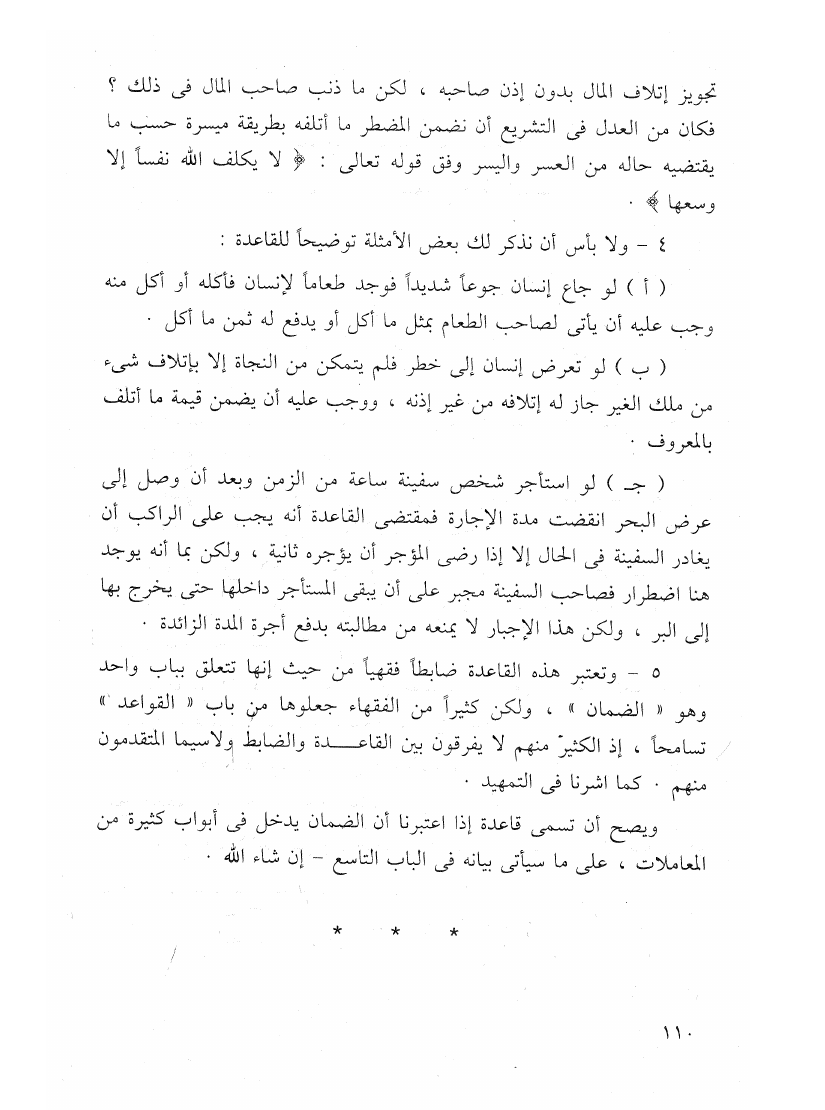 تجويز إتلاف المال بدون إذن صاحبه ، لكن ما ذنب صاحب المال فى ذلك ؟
فكان من العدل فى التشريع أن نضمن المضطر ما أتلفه بطريقة ميسرة حسب ما
يقتضيه حاله من العسر واليسر وفق قوله تعالى : ﴿ لا يكلف الله نفساً إلا
وسعها ﴾ .
٤ - ولا بأس أن نذكر لك بعض الأمثلة توضيحاً للقاعدة :
( أ ) لو جاع إنسان جوعاً شديداً فوجد طعاماً لإنسان فأكله أو أكل منه
وجب عليه أن يأتى لصاحب الطعام بمثل ما أكل أو يدفع له ثمن ما أكل .
( ب ) لو تعرض إنسان إلى خطر فلم يتمكن من النجاة إلا بإتلاف شىء
من ملك الغير جاز له إتلافه من غير إذنه ، ووجب عليه أن يضمن قيمة ما أتلف
بالمعروف .
( جـ ) لو استأجر شخص سفينة ساعة من الزمن وبعد أن وصل إلى
عرض البحر انقضت مدة الإجارة فمقتضى القاعدة أنه يجب على الراكب أن
يغادر السفينة فى الحال إلا إذا رضى المؤجر أن يؤجره ثانية ، ولكن بما أنه يوجد
هنا اضطرار فصاحب السفينة مجبر على أن يبقى المستأجر داخلها حتى يخرج بها
إلى البر ، ولكن هذا الإجبار لا يمنعه من مطالبته بدفع أجرة المدة الزائدة .
٥ - وتعتبر هذه القاعدة ضابطاً فقهياً من حيث إنها تتعلق بباب واحد
وهو « الضمان » ، ولكن كثيراً من الفقهاء جعلوها من باب « القواعد »
تسامحاً ، إذ الكثير منهم لا يفرقون بين القاعـــدة والضابط ولاسيما المتقدمون
منهم . كما اشرنا فى التمهيد .
ويصح أن تسمى قاعدة إذا اعتبرنا أن الضمان يدخل فى أبواب كثيرة من
المعاملات ، على ما سيأتى بيانه فى الباب التاسع - إن شاء الله .
* * *
١١٠